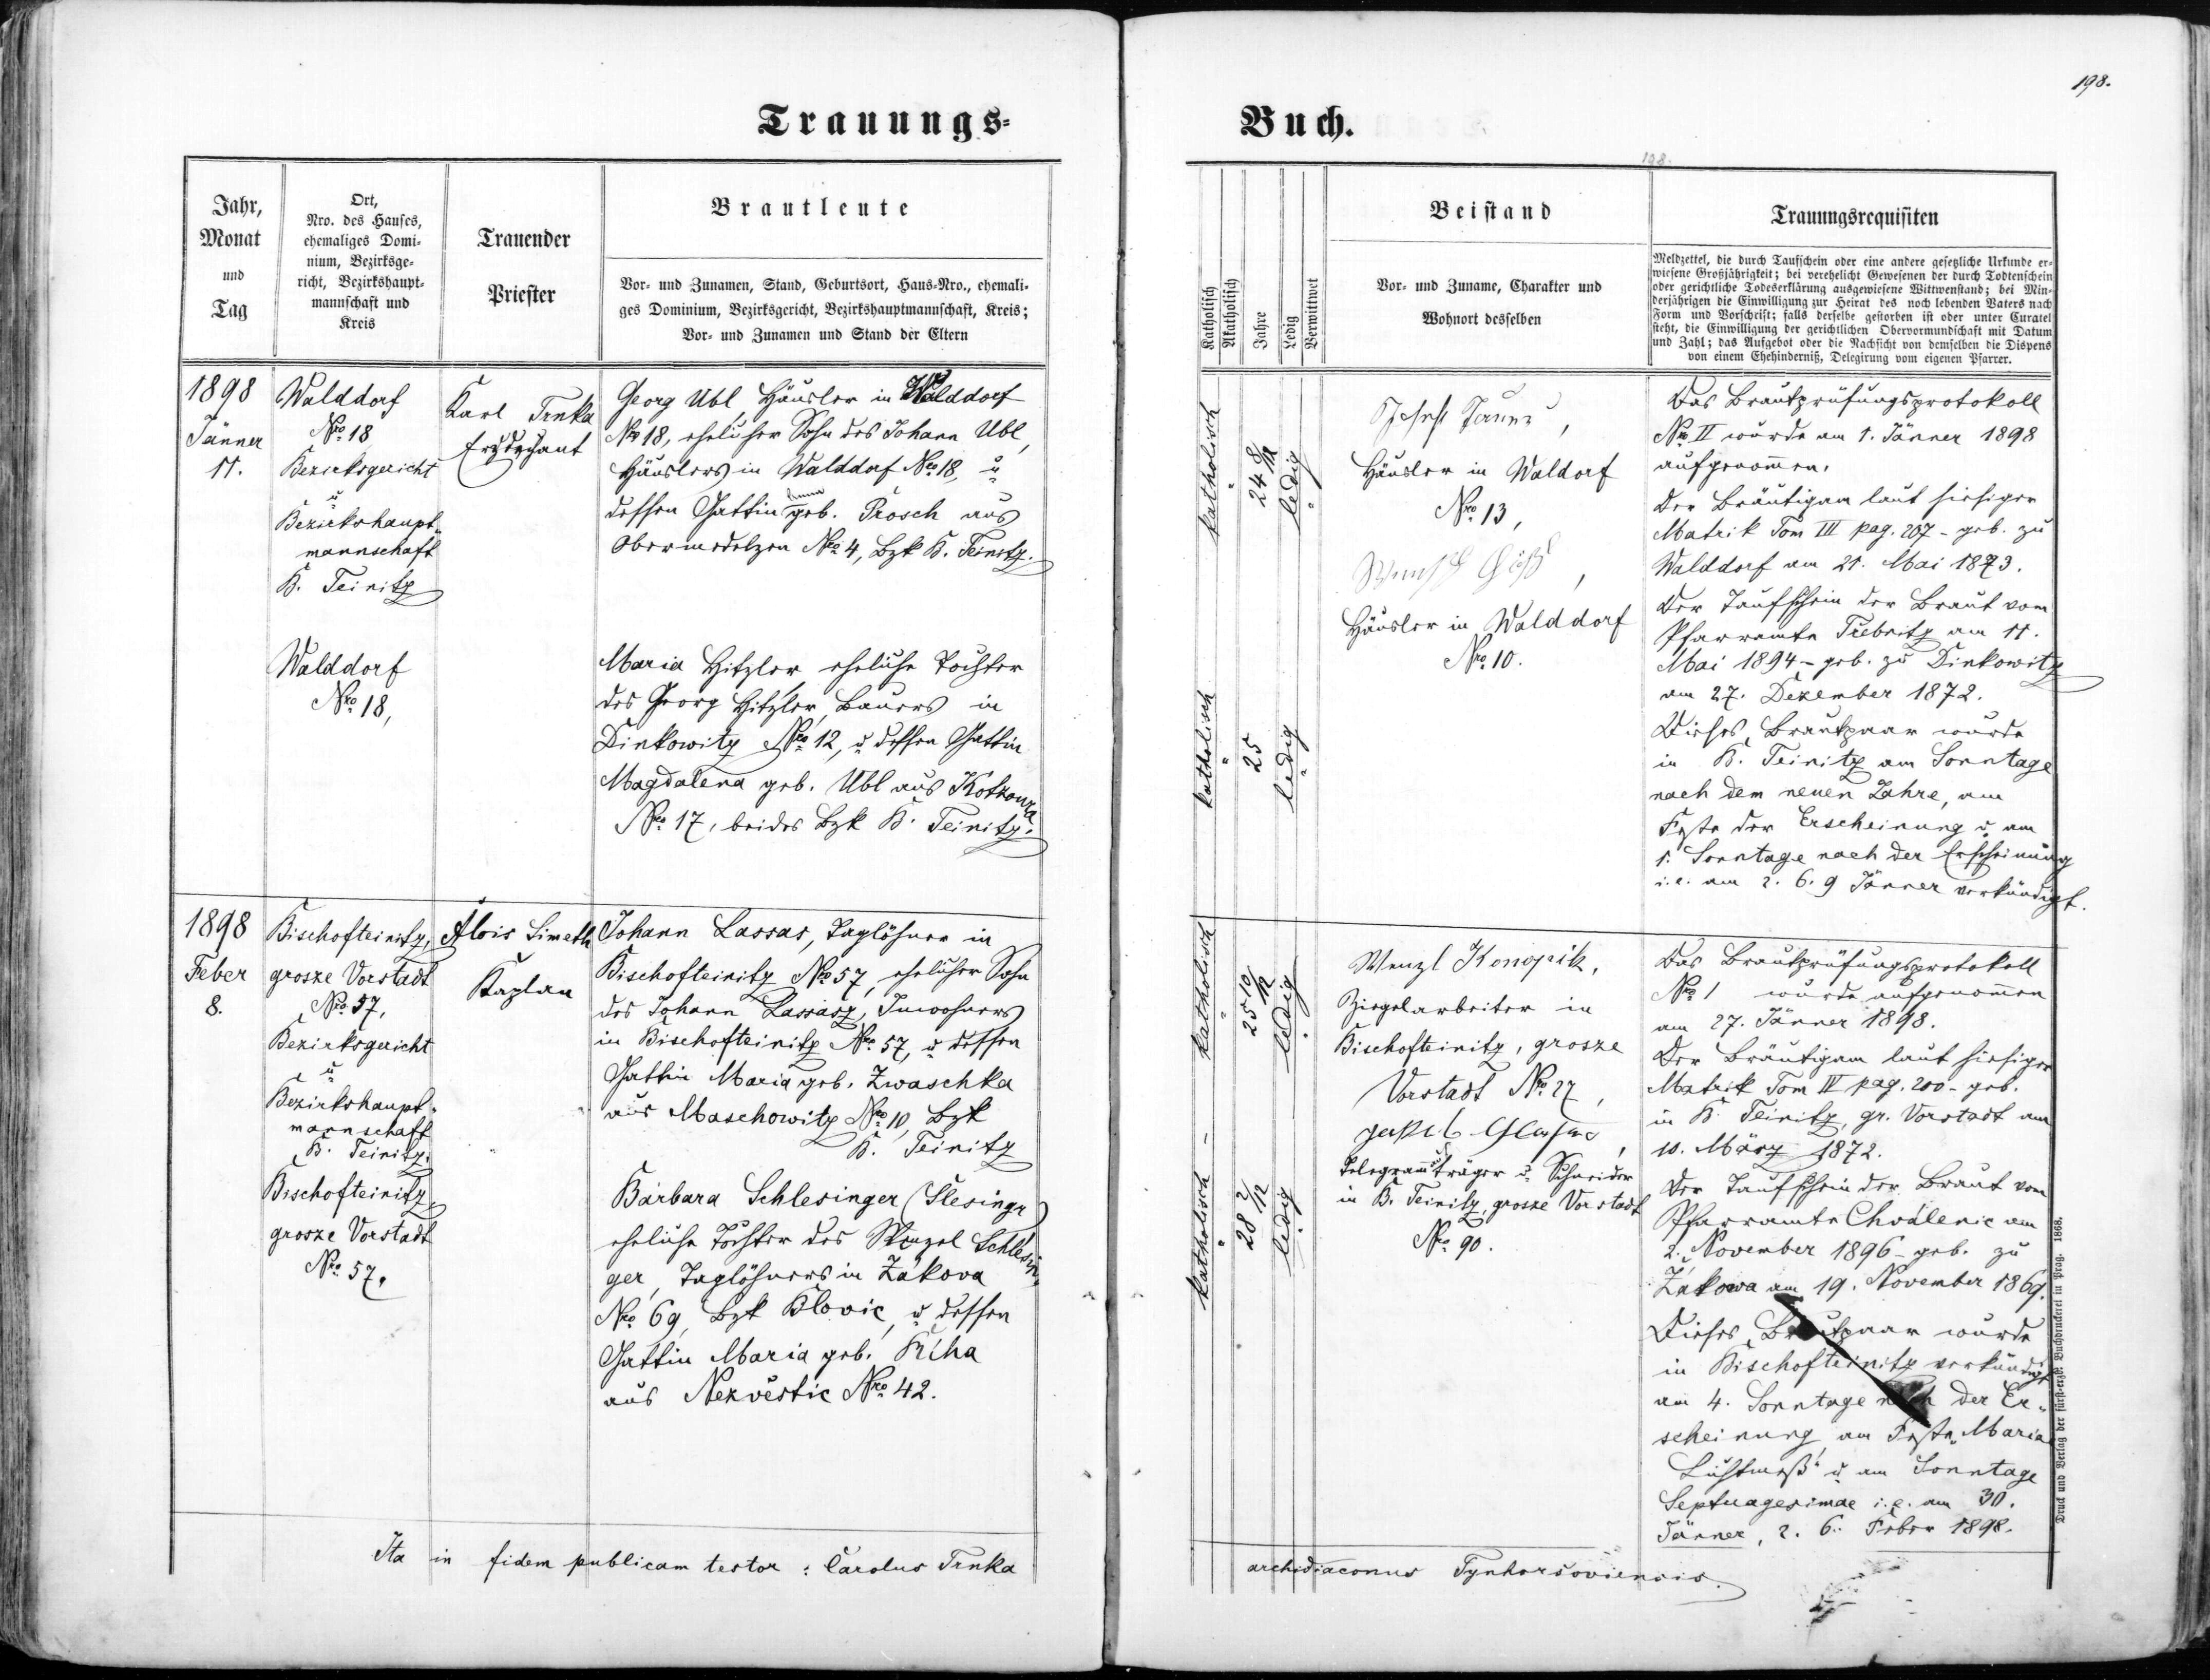 198.
Trauungs-
Buch.
198.
Jahr,
Monat
und
Tag
Ort,
Nro. des Hauses,
ehemaliges Domi-
nium, Bezirksge-
richt, Bezirkshaupt-
mannschaft und
Kreis
Trauender
Priester
Brautleute
Vor- und Zunamen, Stand, Geburtsort, Haus-Nro., ehemali-
ges Dominium, Bezirksgericht, Bezirkshauptmannschaft, Kreis;
Vor- und Zunamen und Stand der Eltern
Katholisch
Akatholisch
Jahre
Ledig
Verwittwet
Beistand
Vor- und Zuname, Charakter und
Wohnort desselben
Trauungsrequisiten
Meldzettel, die durch Taufschein oder eine andere gesetzliche Urkunde er-
wiesene Großjährigkeit; bei verehelicht Gewesenen der durch Todtenschein
oder gerichtliche Todeserklärung ausgewiesene Wittwenstand; bei Min-
derjährigen die Einwilligung zur Heirat des noch lebenden Vaters nach
Form und Vorschrift; falls derselbe gestorben ist oder unter Curatel
steht, die Einwilligung der gerichtlichen Obervormundschaft mit Datum
und Zahl; das Aufgebot oder die Nachsicht von demselben die Dispens
von einem Ehehinderniß, Delegirung vom eigenen Pfarrer.
1898
Jänner
11.
Walddorf
Nro 18
Bezirksgericht
u
Bezirkshaupt-
mannschaft
B. Teinitz
Karl Trnka
Erzdechant
Georg Ubl, Häusler in Walddorf
Nro 18, ehelicher Sohn des Johann Ubl,
Häuslers in Walddorf Nro 18, u
dessen Gattin Anna geb. Prosch aus
Obermedelzen Nro 4, Bzk B. Teinitz.
Walddorf
Nro 18,
Maria Hitzler, eheliche Tochter
des Georg Hitzler, Bauers in
Dinkowitz Nro 12, u dessen Gattin
Magdalena geb. Ubl aus Kotzoura
Nro 17, beides Bzk B. Teinitz.
katholisch
24 8/12
ledig
katholisch
25
ledig
Josef
Häusler in Waldorf
Nro 13,
Häusler in Walddorf
Nro 10.
Das Brautprüfungsprotokoll
Nro II wurde am 1. Jänner 1898
aufgenommen.
Der Bräutigam laut hiesiger
Matrik Tom III pag. 207 - geb. zu
Walddorf am 21. Mai 1873.
Der Taufschein der Braut vom
Pfarramte Třebnitz am 11.
Mai 1894 - geb. zu Dinkowitz
am 27. Dezember 1872.
Dieses Brautpaar wurde
in B. Teinitz am Sonntage
nach dem neuen Jahre, am
Feste der Erscheinung u am
1. Sonntage nach der Erscheinung
i.e. am 2. 6. 9 Jänner verkündigt.
1898
Feber
8.
Bischofteinitz,
grosze Vorstadt
Nro 57,
Bezirksgericht
u
Bezirkshaupt-
mannschaft
B. Teinitz.
Alois Simeth
Kaplan
Johann Lassas, Taglöhner in
Bischofteinitz Nro 57, ehelicher Sohn
des Johann Lassasz, Inwohners
in Bischofteinitz Nro 57, u dessen
Gattin Maria geb. Zwaschka
aus Maschowitz Nro 10, Bzk
B. Teinitz
Bischofteinitz,
grosze Vorstadt
Nro 57.
Barbara Schlesinger (Šlesingr)
eheliche Tochter des Wenzel Schlesin-
ger, Taglöhners in Žákova
Nro 69, Bzk Blovic, u dessen
Gattin Maria geb. Říha
aus Nezvěstic Nro 42.
katholisch
25 10/12
ledig
katholisch
28 2/12
ledig
Wenzl Konopik,
Ziegelarbeiter in
Bischofteinitz, grosze
Vorstadt Nro 27,
Telegrammträger u Schneider
in B. Teinitz, grosze Vorstadt
Nro 90.
Das Brautprüfungsprotokoll
Nro 1 wurde aufgenommen
am 27. Jänner 1898.
Der Bräutigam laut hiesiger
Matrik Tom IV pag. 200 - geb.
in B. Teinitz, gr. Vorstadt am
10. März 1872.
Der Taufschein der Braut vom
Pfarramte Chválenic am
2. November 1896 - geb. zu
Žákowa am 19. November 1869.
Dieses Brautpaar wurde
in Bischofteinitz verkündigt
am 4. Sonntage nach der Er-
scheinung, am Feste „Maria
Lichtmeß“ u am Sonntage
Septuagesimae i.e. am 30.
Jänner, 2. 6. Feber 1898.
Ita in fidem publicam testor: Carolus Trnka
archidiaconus Tynhorsoviensis.
Druck und Verlag der fürst-erzb. Buchdruckerei in Prag. 1868.